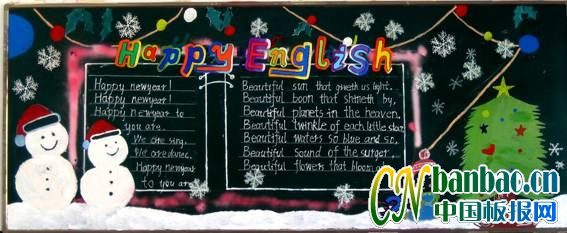 Happy English
Happy newyear!
Happy newyear!
Happy newyear to
you are.
We are sing,
We are dance.
Happy newyear
to you are
Beautiful sun that giveth us light,
Beautiful boon that shineth by,
Beautiful planets in the heaven.
Beautiful twinkle of each little star
Beautiful waters so blue and so,
Beautiful sound of the surger
Beautiful flowers that bloom
CNbanbao.cn
中国板报网